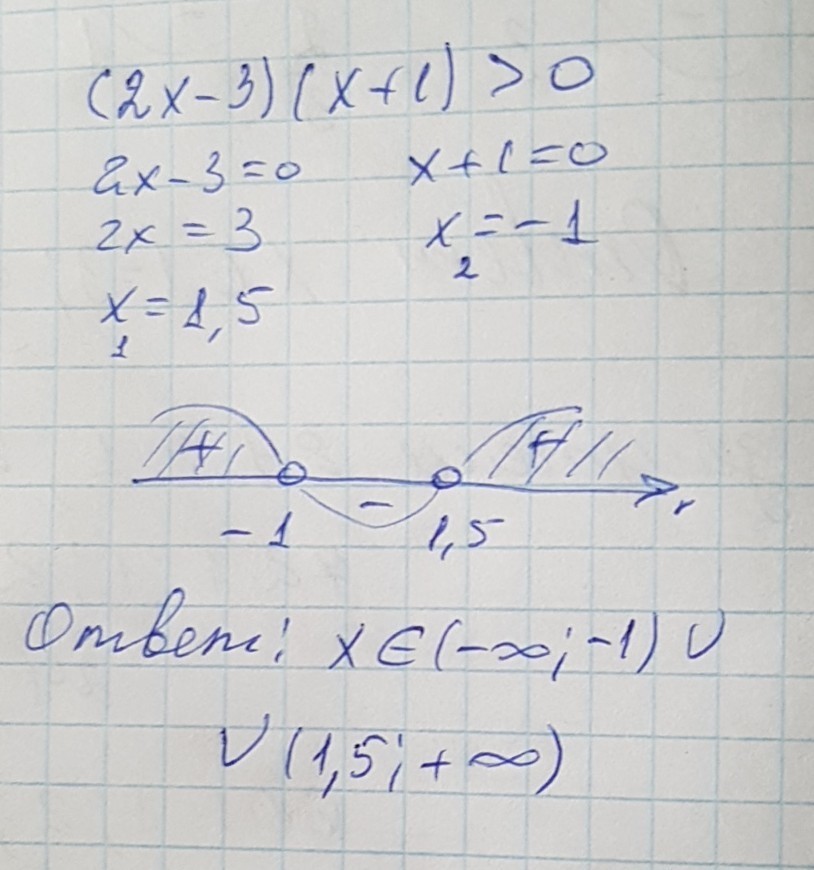 (2x-3)(x+1) > 0
2x-3=0 x+1=0
2x = 3 x₂=-1
x₁=1,5
+ - +
-1 1,5 x
Ответ: x∈(-∞;-1) ∪
∪ (1,5;+∞)